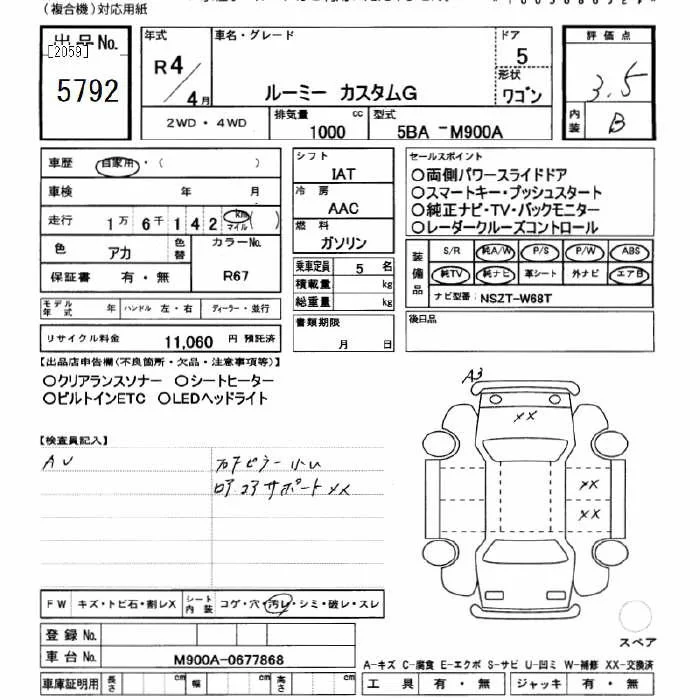 (複合機)対応用紙
出品No.
[2059]
5792
年式
R4
4月
車名・グレード
ルーミー カスタムG
ドア
5
形状
ワゴン
評価点
3.5
内装
B
2WD・4WD
排気量
1000 cc
型式
5BA -M900A
車歴 自家用・( )
車検 年 月
走行 1万6千142 km マイル ( )
色 アカ
色替
カラーNo.
R67
保証書 有・無
シフト
IAT
冷房
AAC
燃料
ガソリン
乗車定員 5 名
積載量 kg
総重量 kg
書類期限
月 日
セールスポイント
○両側パワースライドドア
○スマートキー・プッシュスタート
○純正ナビ・TV・バックモニター
○レーダークルーズコントロール
装備品
S/R 純A/W P/S P/W ABS
純TV 純ナビ 革シート 外ナビ エアB
ナビ型番: NSZT-W68T
後日品
モデル年式 年 ハンドル 左・右 ディーラー・並行
リサイクル料金 11,060 円 預託済
【出品店申告欄(不良箇所・欠品・注意事項等)】
○クリアランスソナー ○シートヒーター
○ビルトインETC ○LEDヘッドライト
【検査員記入】
AU
ピラー小U
コアサポートXX
A3
XX
XX
XX
FW キズ・トビ石・割レX シート内装 コゲ・穴・汚レ・シミ・破レ・スレ
スペア
登録No.
車台No. M900A-0677868
A-キズ C-腐食 E-エクボ S-サビ U-凹ミ W-補修 XX-交換済
車庫証明用 長さ cm 幅 cm 高さ cm
工具 有・無 ジャッキ 有・無